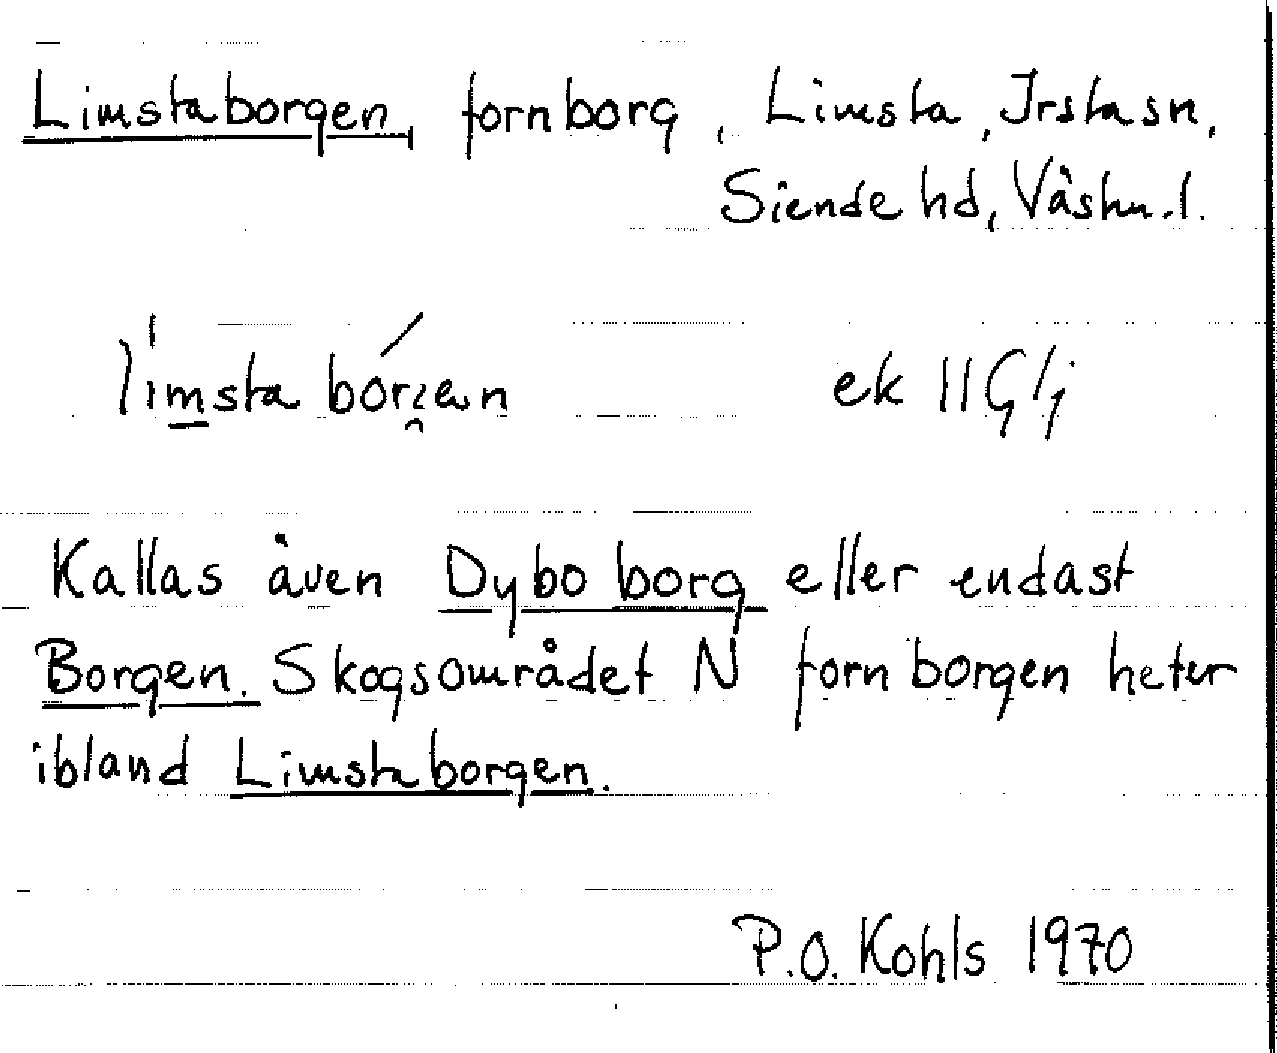 Limstaborgen, fornborg, Limsta, Irsta sn,
Siende hd, Västm.l.
limsta borgen ek 11G/j
Kallas även Dybo borg eller endast
Borgen. Skogsområdet N fornborgen heter
ibland Limstaborgen.
P.O. Kohls 1970